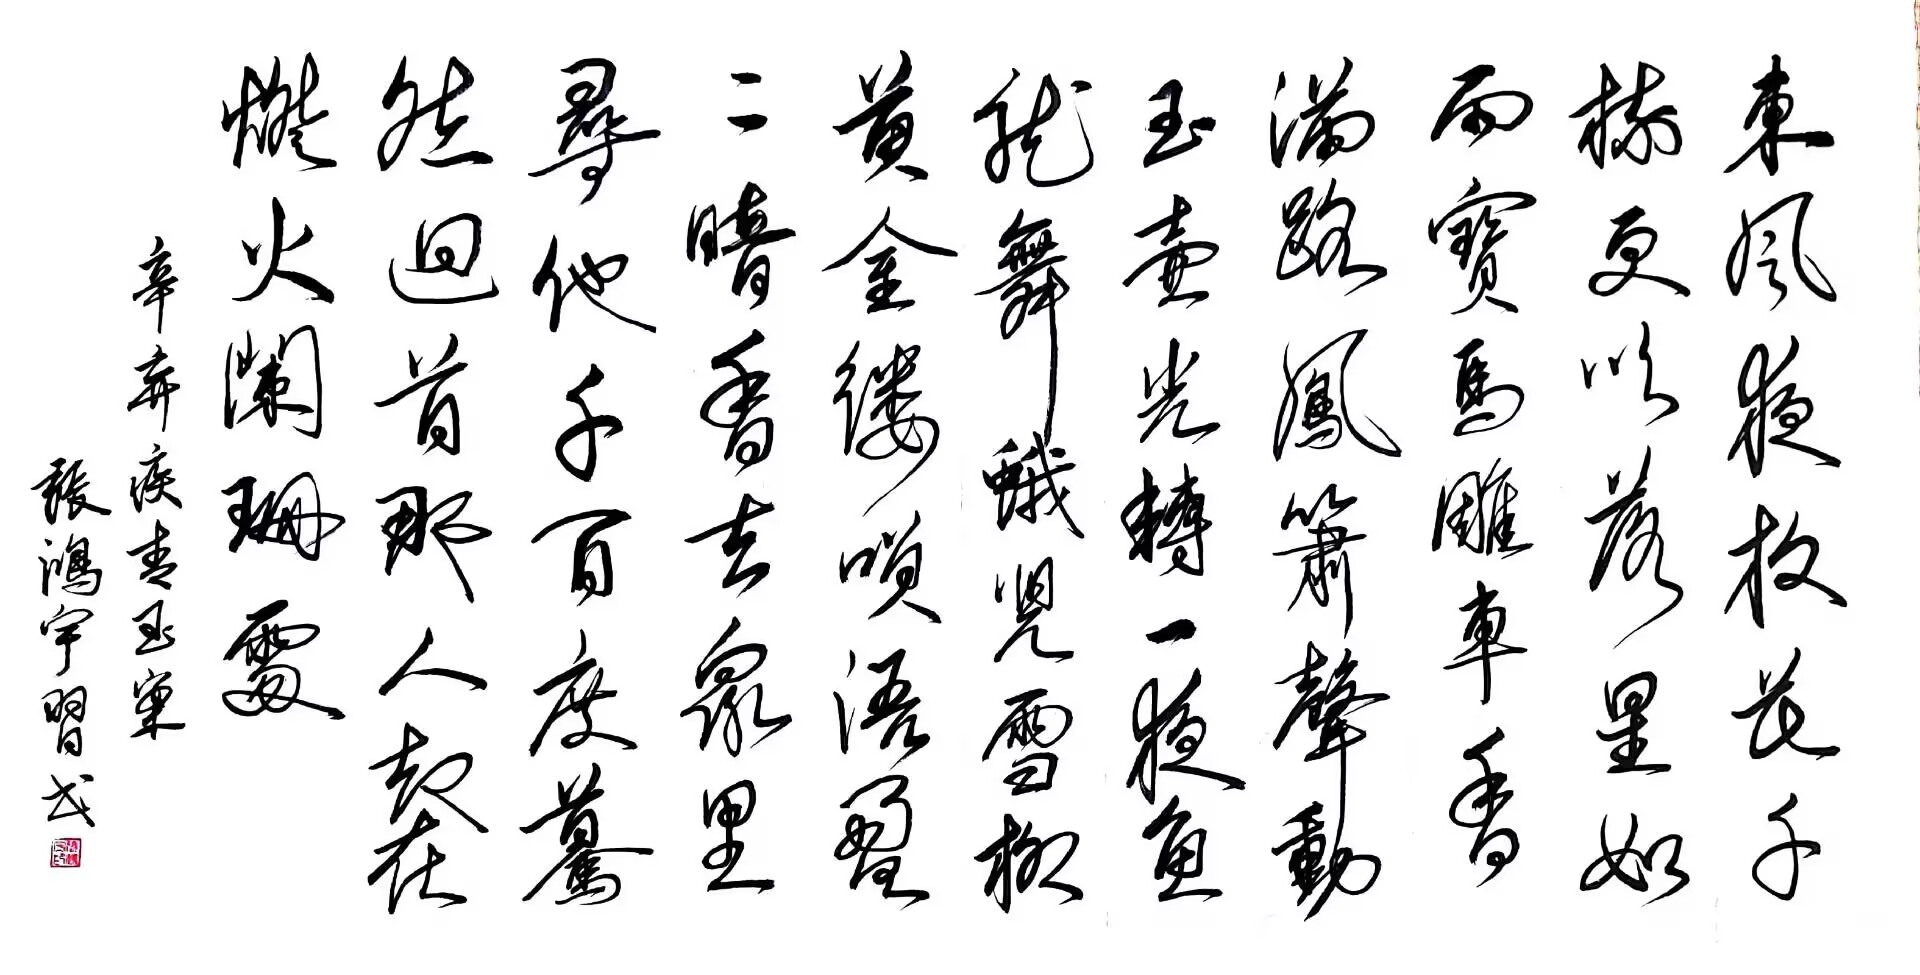 東风夜放花千
樹更吹落星如
雨寶馬雕車香
滿路鳳簫聲動
玉壷光轉一夜魚
龙舞蛾児雪柳
黄金缕咲语盈
二暗香去衆里
尋他千百度驀
然迴首那人却在
燈火闌珊處
辛弃疾青玉案
張鴻宇習书